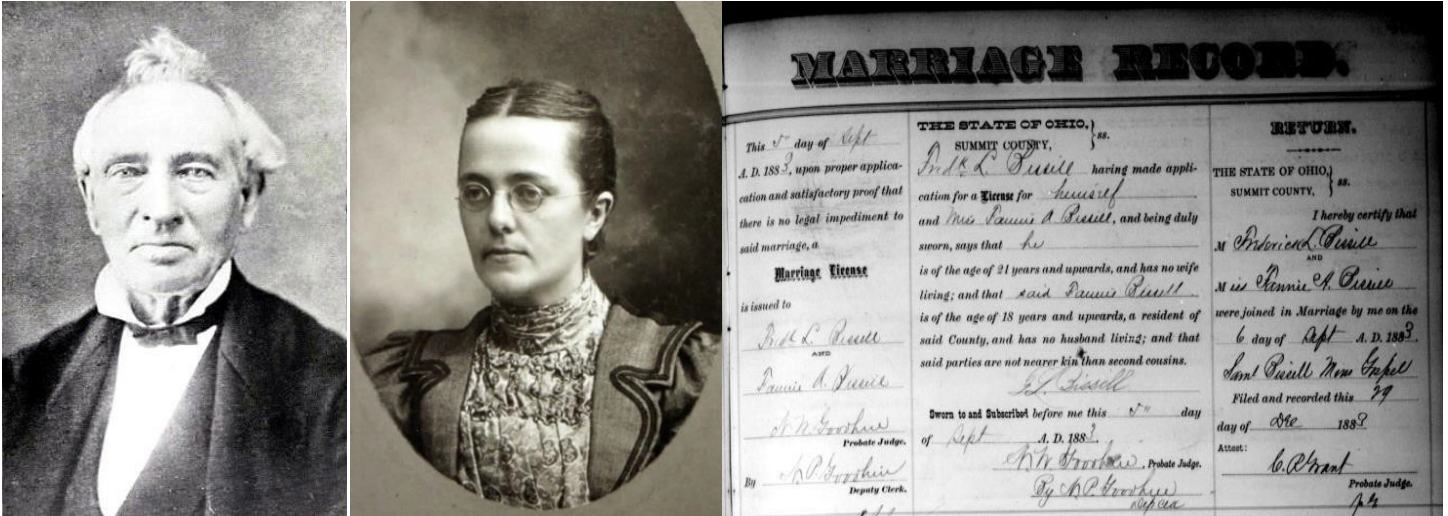 MARRIAGE RECORD.
This 5" day of Sept
A. D. 1883, upon proper applica-
cation and satisfactory proof that
there is no legal impediment to
said marriage, a
Marriage License
is issued to
Fredk L. Bissell
AND
Fannie A. Bissell
N. W. Goodhue
Probate Judge.
By N. P. Goodhue
Deputy Clerk.
THE STATE OF OHIO,
SUMMIT COUNTY, } ss.
Fredk L. Bissell having made appli-
cation for a License for himself
and Miss Fannie A Bissell, and being duly
sworn, says that he
is of the age of 21 years and upwards, and has no wife
living; and that said Fannie Bissell
is of the age of 18 years and upwards, a resident of
said County, and has no husband living; and that
said parties are not nearer kin than second cousins.
F L Bissell
Sworn to and Subscribed before me this 5" day
of Sept A. D. 1883.
N. W. Goodhue, Probate Judge.
By N. P. Goodhue
RETURN.
THE STATE OF OHIO,
SUMMIT COUNTY, } ss.
I hereby certify that
M Frederick L. Bissell
AND
Miss Fannie A. Bissell
were joined in Marriage by me on the
6 day of Sept A. D. 1883.
Saml Bissell Gospel
Filed and recorded this 29
day of Dec 1883
Attest:
C. R. Grant
Probate Judge.